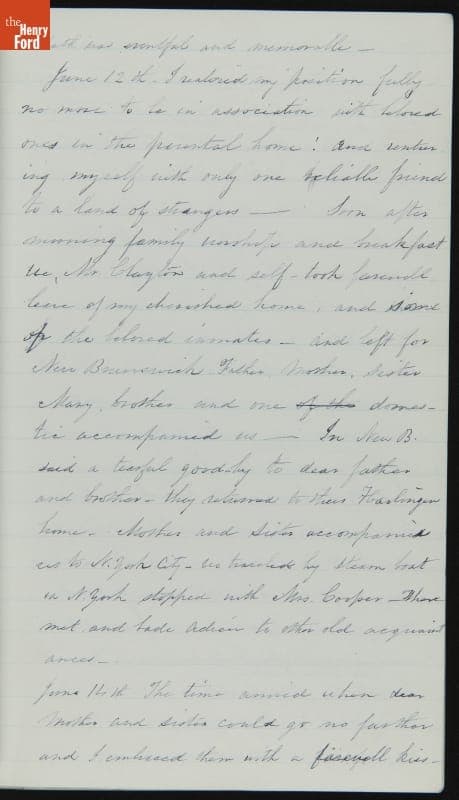 the
Henry
Ford
was eventful and memorable. —
June 12th. I realized my position fully
no more to be in association with beloved
ones in the parental home! and ventur-
ing myself with only one reliable friend
to a land of strangers — Soon after
morning family worship and breakfast
we, Mr. Clayton and self - took farewell
leave of my cherished home, and some
of the beloved inmates — and left for
New Brunswick Father, Mother, Sister
Mary, brother and one of the domes-
tic accompanied us — In New B.
said a tearful good-by to dear father
and brother — they returned to their Harlingen
home. Mother and Sister accompanied
us to N. York City — we traveled by steam boat
in N. York stopped with Mrs. Cooper — Where
met and bade adieu to other old acquaint
ances —
June 14th The time arrived when dear
Mother and sister could go no farther
and I embraced them with a farewell kiss —